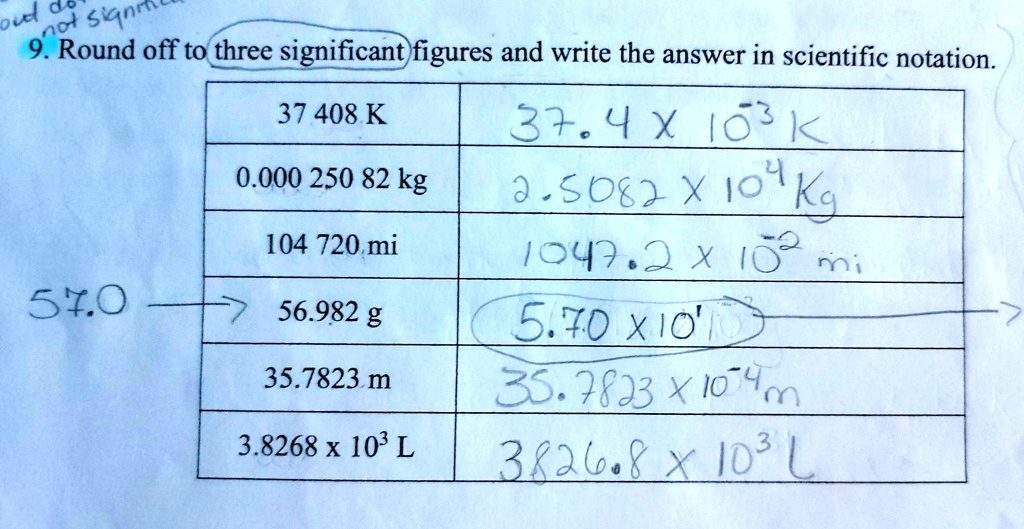 not
9. Round off to three significant figures and write the answer in scientific notation.
37 408 K 37.4 x 10⁻³ K
0.000 250 82 kg 2.5082 x 10⁴ Kg
104 720 mi 1047.2 x 10⁻² mi
57.0 → 56.982 g 5.70 x 10¹
35.7823 m 35.7823 x 10⁻⁴ m
3.8268 x 10³ L 3826.8 x 10³ L